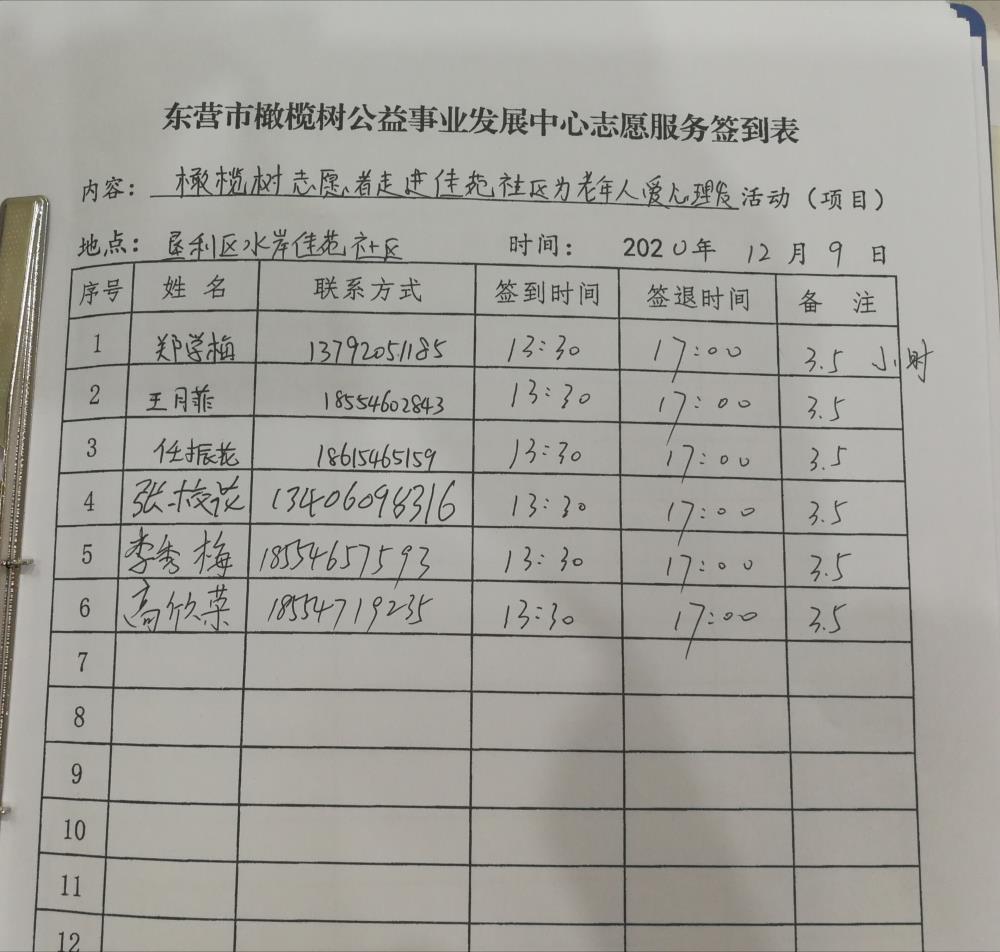 东营市橄榄树公益事业发展中心志愿服务签到表
内容：橄榄树志愿者走进佳苑社区为老年人爱心理发活动（项目）
地点：垦利区水岸佳苑社区 时间：2020年 12月 9 日
序号 姓名 联系方式 签到时间 签退时间 备 注
1 郑学梅 13792051185 13:30 17:00 3.5 小时
2 王月菲 18554602843 13:30 17:00 3.5
3 任振花 18615465159 13:30 17:00 3.5
4 张 13406098316 13:30 17:00 3.5
5 李秀梅 18554657593 13:30 17:00 3.5
6 高欣荣 18554719235 13:30 17:00 3.5
7
8
9
10
11
12